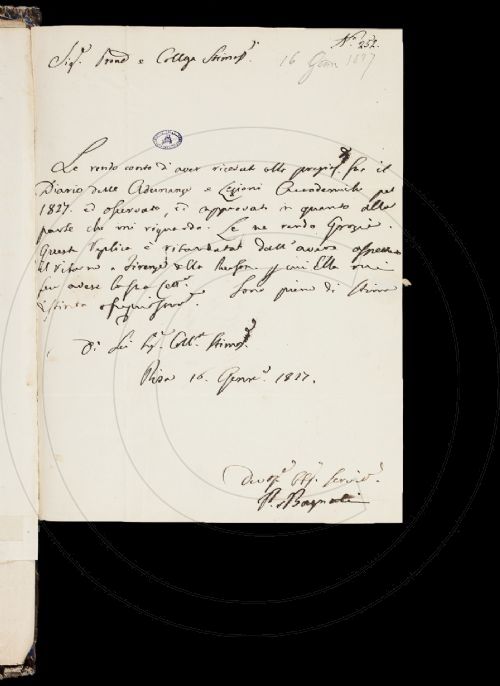 N.° 252.
Sig.r Prone e Collega Stimos.
16 Genn 1827
Le rendo conto di aver ricevuto alla pregiat. sua il
Diario delle Adunanze e Lezioni Accademiche pel
1827. ed osservato, ed approvato in quanto alla
parte che mi riguarda. Le ne rendo Grazie.
Questa Replica è ritardata dall' avere
il ritorno a Firenze della Person. p cui Ella mi
fece avere la sua
Sono pieno di Stima
Di Lei Sig.r Coll.a Stimos.
Pisa 16. Genn.o 1827.
Devot. Obb. Servit.
P. Bagnoli